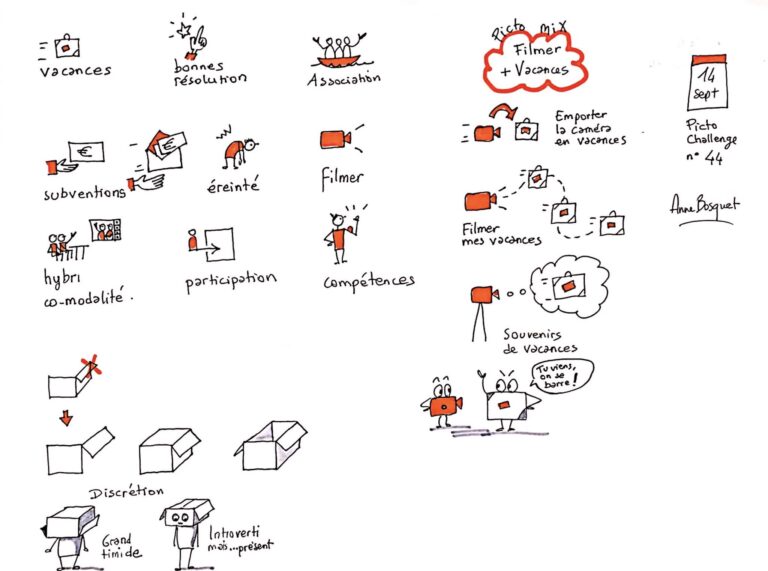 vacances
bonnes
résolution
Association
€
€
subventions
éreinté
filmer
hybri
co-modalité.
participation
compétences
Discrétion
Grand
timide
Introverti
mais...présent
Picto mix
Filmer
+ Vacances
Emporter
la caméra
en vacances
Filmer
mes vacances
Souvenirs
de vacances
Tu viens,
on se
barre!
14
sept
Picto
Challenge
n° 44
Anne Bosquet